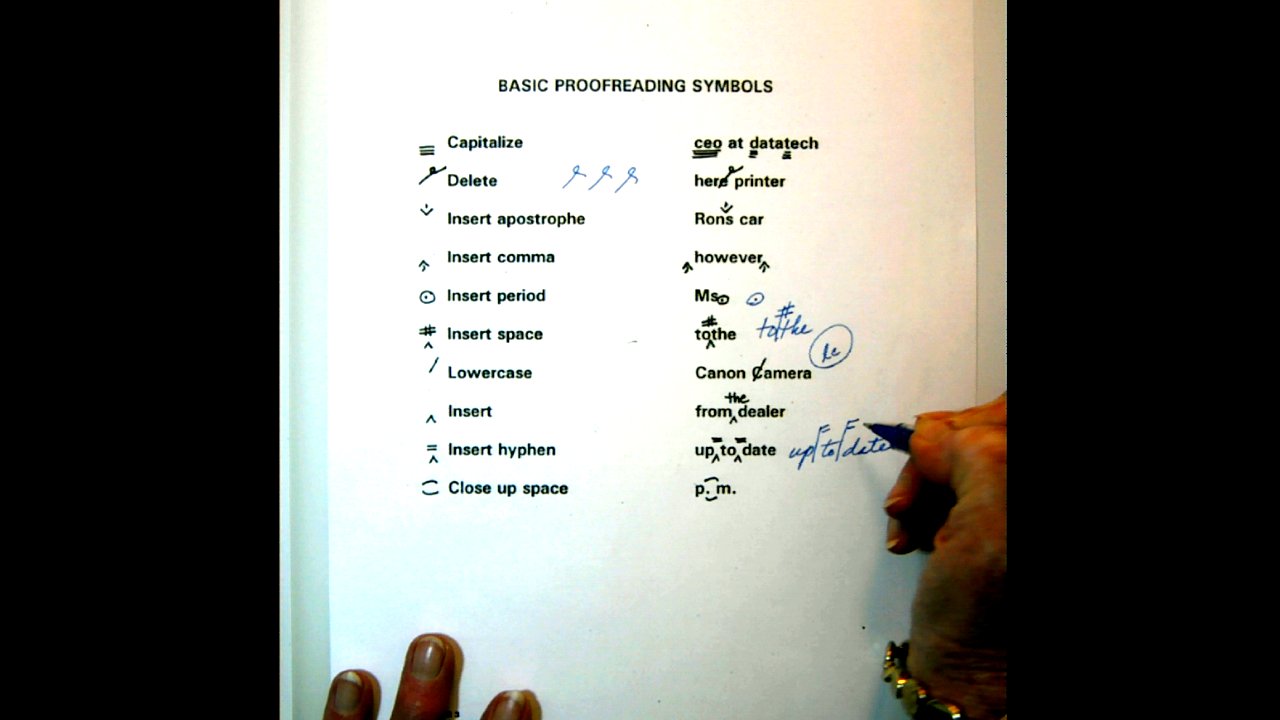 BASIC PROOFREADING SYMBOLS
Capitalize ceo at datatech
Delete here printer
Insert apostrophe Rons car
Insert comma however
Insert period Ms
# Insert space tothe # to the #
lc
Lowercase Canon Camera
the
Insert from dealer
Insert hyphen up to date up to date
Close up space p. m.